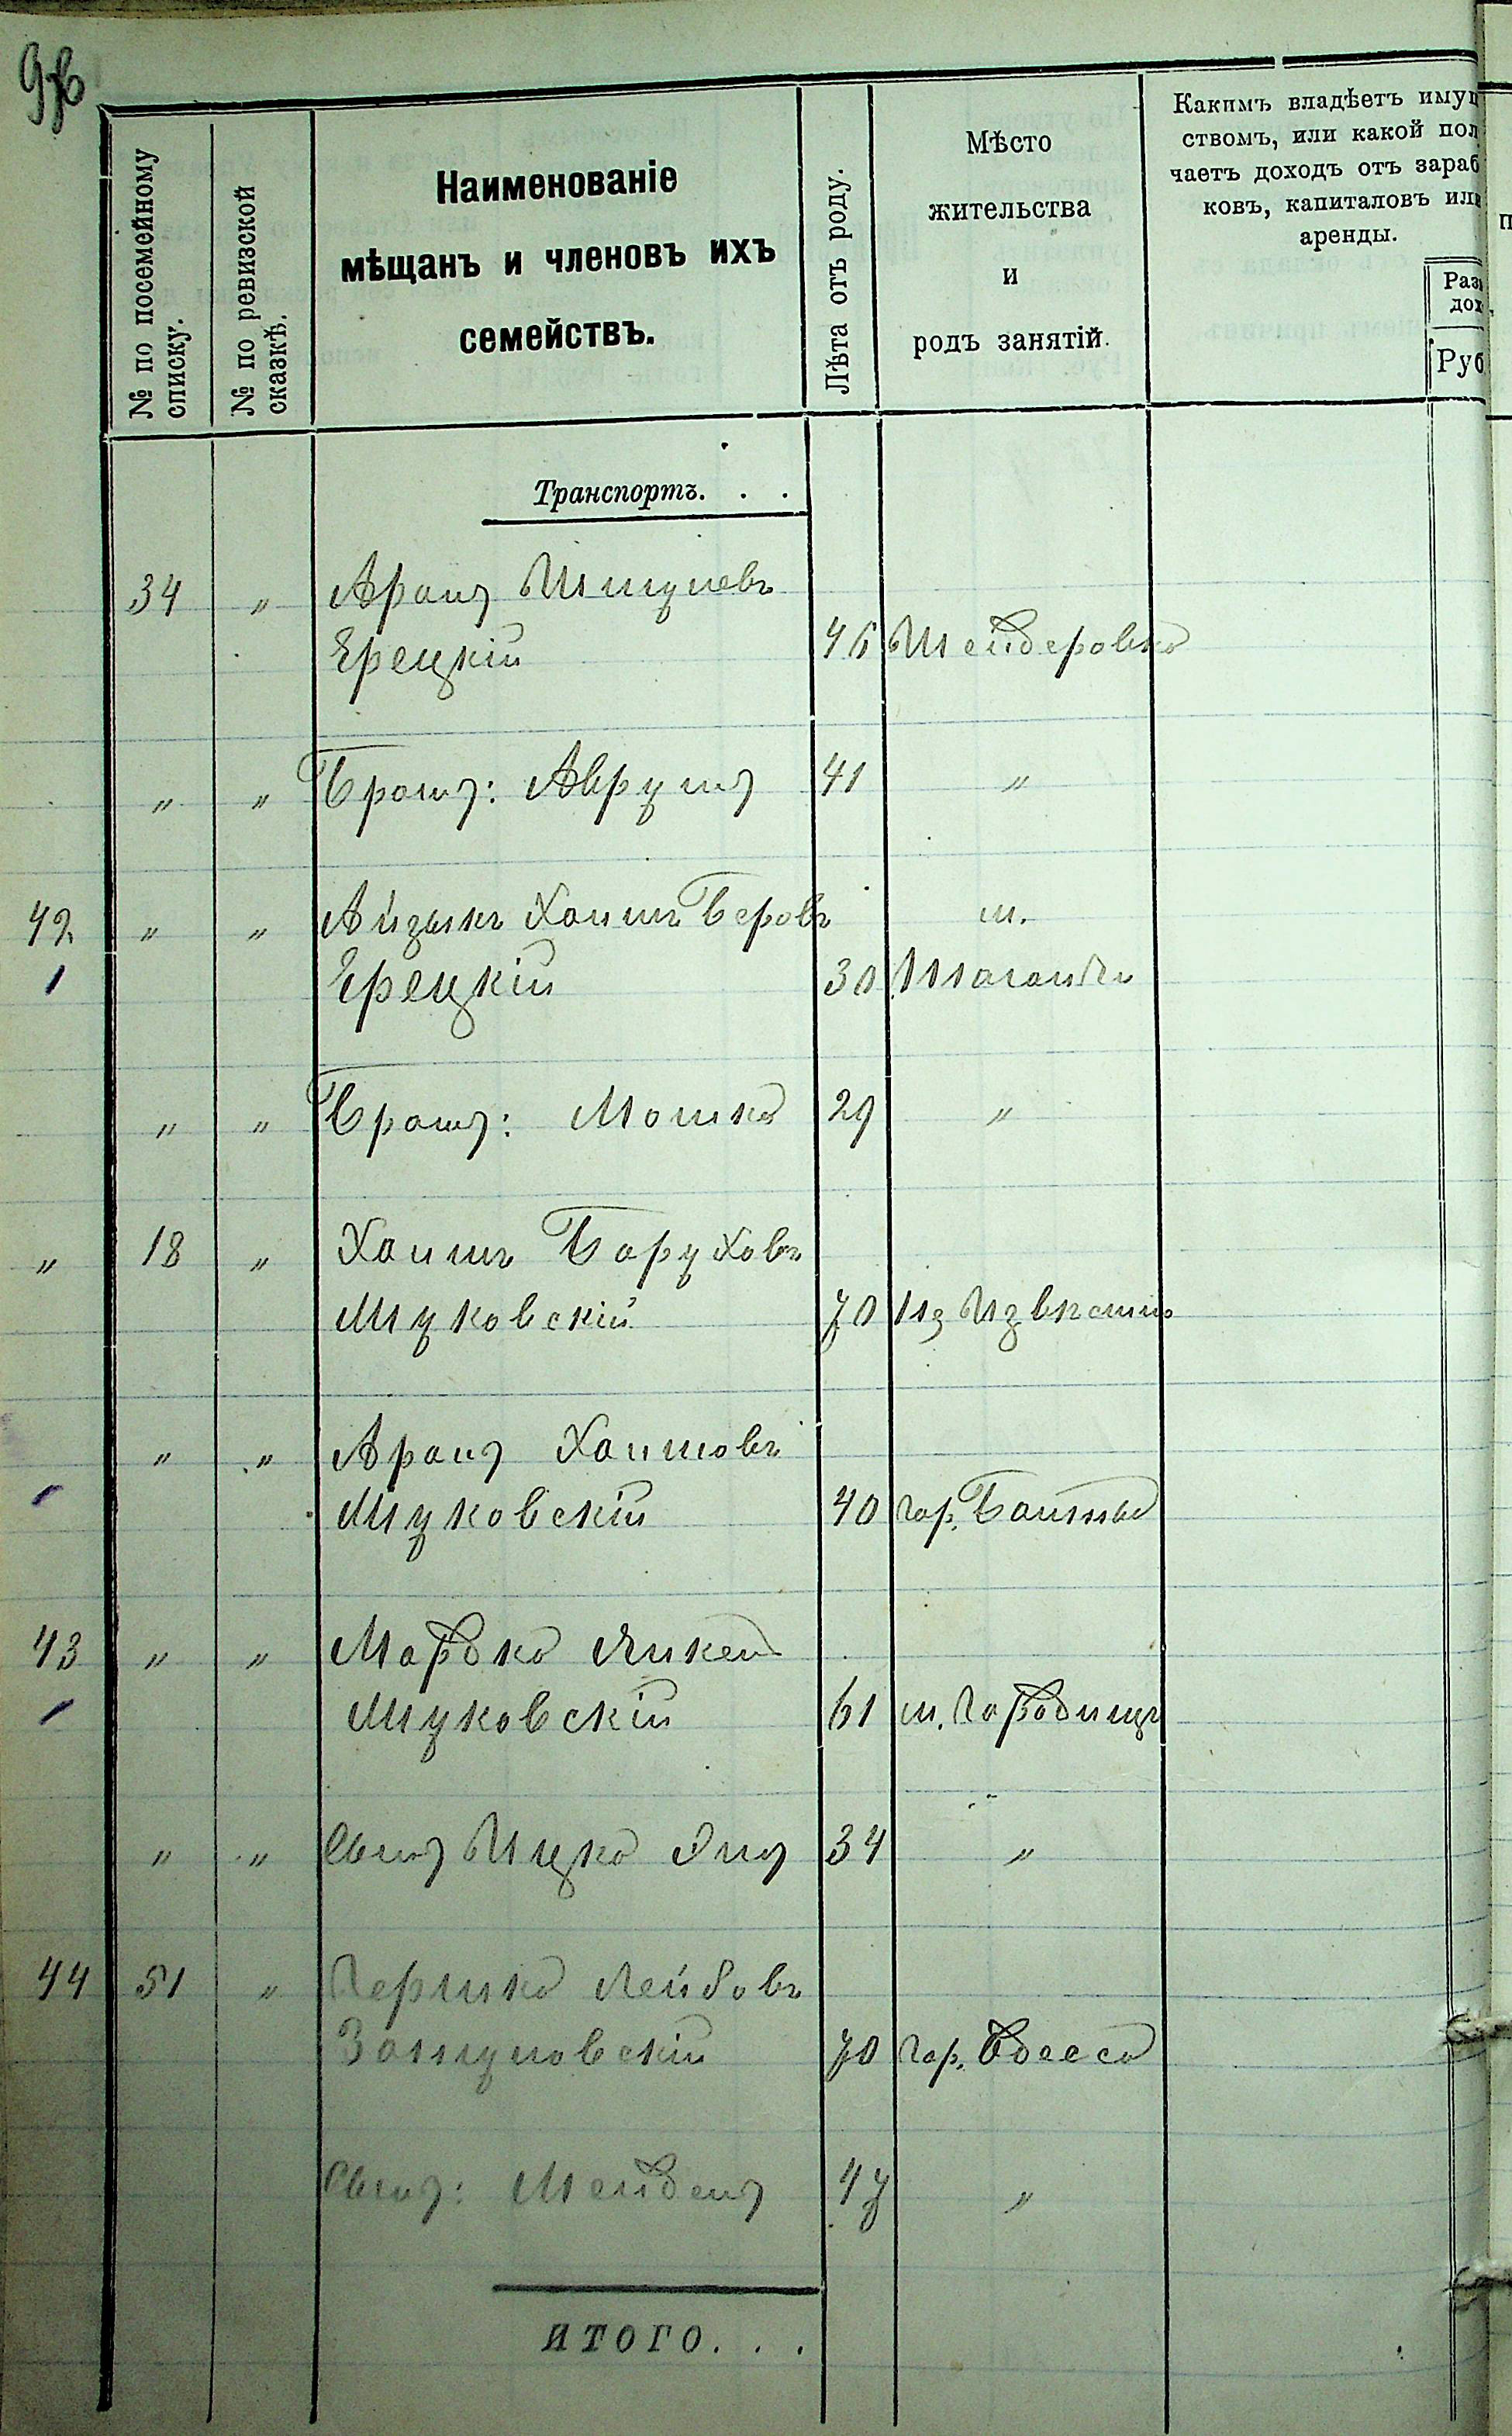 98
№ по посемейному
списку.
№ по ревизской
сказкѣ.
Наименованіе
мѣщанъ и членовъ ихъ
семействъ.
Лѣта отъ роду.
Мѣсто
жительства
и
родъ занятій.
Какимъ владѣетъ имущ
ствомъ, или какой пол
чаетъ доходъ отъ зараб
ковъ, капиталовъ или
аренды.
Раз
дох
Руб
Транспортъ. . .
34 " Аронъ
Ерецкій 46 Шендеровка
" " Братъ: Аврумъ 41 "
42 " " Айзыкъ Хаимъ Беровъ м.
Ерецкій 30
" " Братъ: Мошко 29 "
" 18 " Хаимъ Баруховъ
Муковскій 70
" " Аронъ Хаимовъ
Муковскій 40 гор.
43 " "  Мордко
Муковскій 61 м. Городище
" " Сынъ Ицко 34 "
44 51 " Гершко Лейбовъ
70 гор. Одесса
Сынъ: Мендель 47 "
ИТОГО. . .